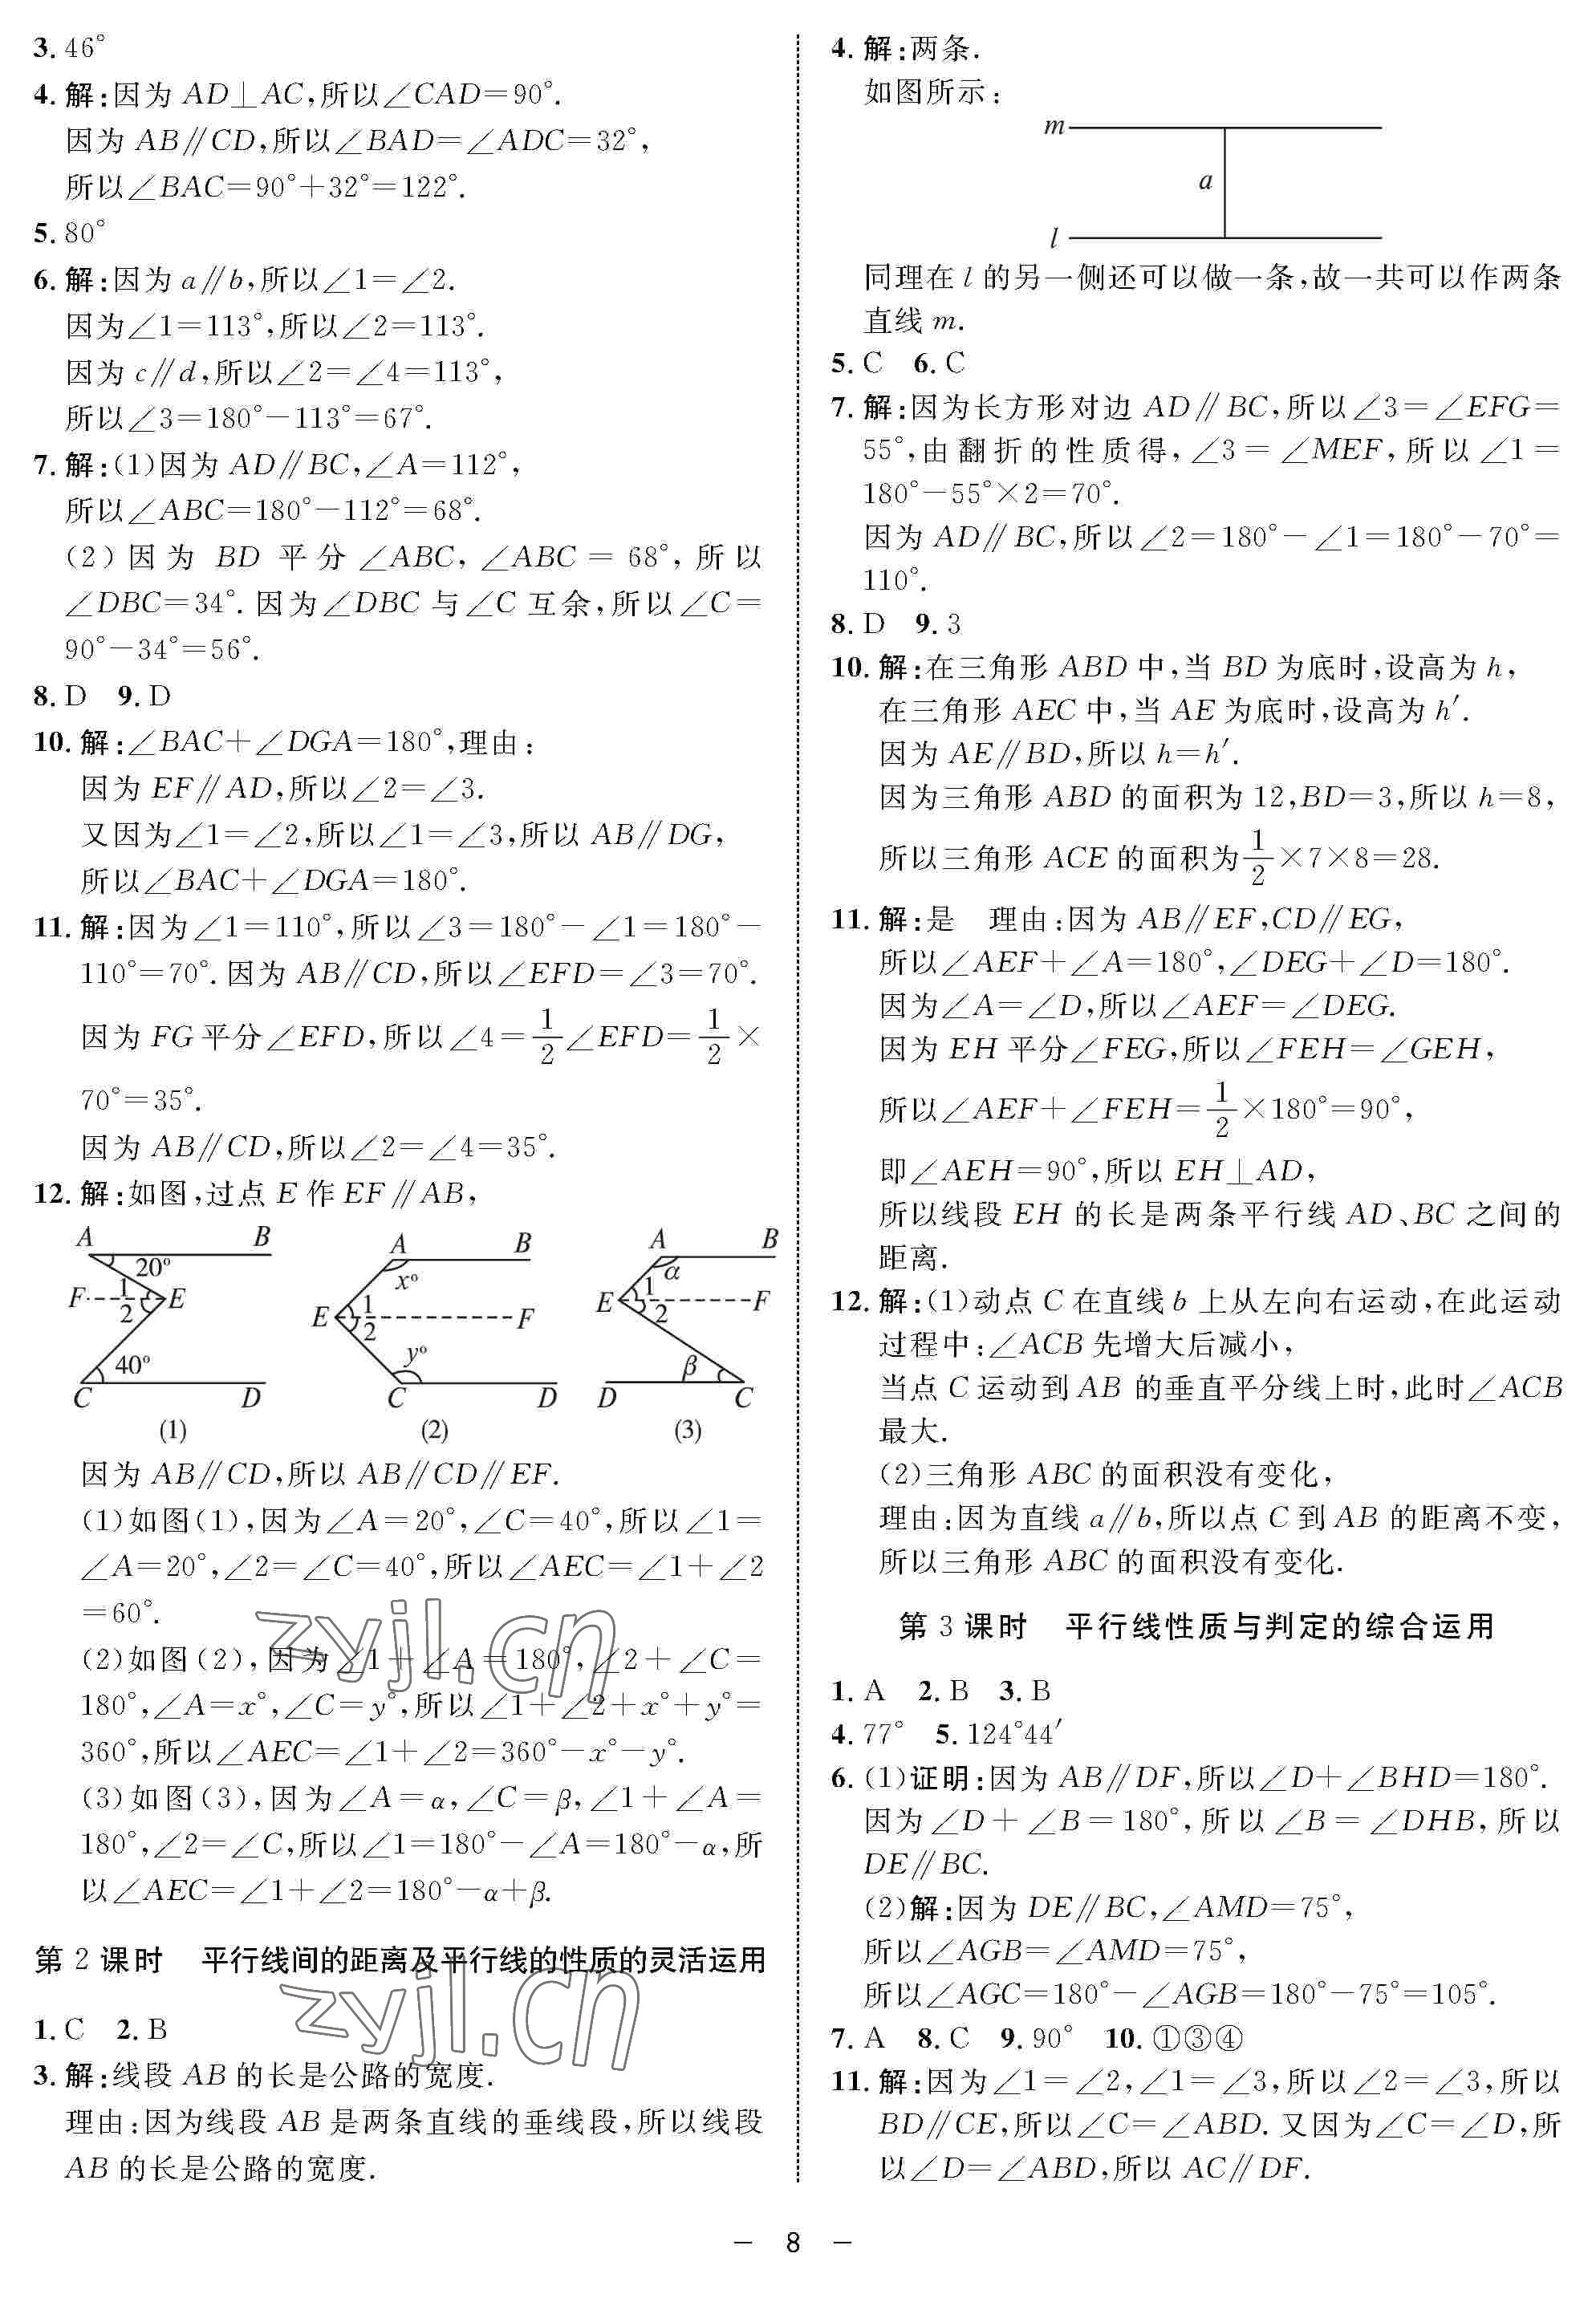 3. 46°
4. 解:因为 AD⊥AC,所以∠CAD=90°.
因为 AB∥CD,所以∠BAD=∠ADC=32°,
所以∠BAC=90°+32°=122°.
5. 80°
6. 解:因为 a∥b,所以∠1=∠2.
因为∠1=113°,所以∠2=113°.
因为 c∥d,所以∠2=∠4=113°,
所以∠3=180°-113°=67°.
7. 解:(1)因为 AD∥BC,∠A=112°,
所以∠ABC=180°-112°=68°.
(2)因为 BD 平分∠ABC,∠ABC=68°,所以
∠DBC=34°.因为∠DBC 与∠C 互余,所以∠C=
90°-34°=56°.
8. D 9. D
10. 解:∠BAC+∠DGA=180°,理由:
因为 EF∥AD,所以∠2=∠3.
又因为∠1=∠2,所以∠1=∠3,所以 AB∥DG,
所以∠BAC+∠DGA=180°.
11. 解:因为∠1=110°,所以∠3=180°-∠1=180°-
110°=70°.因为 AB∥CD,所以∠EFD=∠3=70°.
因为 FG 平分∠EFD,所以∠4=1/2∠EFD=1/2×
70°=35°.
因为 AB∥CD,所以∠2=∠4=35°.
12. 解:如图,过点 E 作 EF∥AB,
A B 20° F 1 2 E 40° C D (1)
A B x° E 1 2 F y° C D (2)
A B α E 1 2 F β D C (3)
因为 AB∥CD,所以 AB∥CD∥EF.
(1)如图(1),因为∠A=20°,∠C=40°,所以∠1=
∠A=20°,∠2=∠C=40°,所以∠AEC=∠1+∠2
=60°.
(2)如图(2),因为∠1+∠A=180°,∠2+∠C=
180°,∠A=x°,∠C=y°,所以∠1+∠2+x°+y°=
360°,所以∠AEC=∠1+∠2=360°-x°-y°.
(3)如图(3),因为∠A=α,∠C=β,∠1+∠A=
180°,∠2=∠C,所以∠1=180°-∠A=180°-α,所
以∠AEC=∠1+∠2=180°-α+β.
第 2 课时 平行线间的距离及平行线的性质的灵活运用
1. C 2. B
3. 解:线段 AB 的长是公路的宽度.
理由:因为线段 AB 是两条直线的垂线段,所以线段
AB 的长是公路的宽度.
4. 解:两条.
如图所示:
m
a
l
同理在 l 的另一侧还可以做一条,故一共可以作两条
直线 m.
5. C 6. C
7. 解:因为长方形对边 AD∥BC,所以∠3=∠EFG=
55°,由翻折的性质得,∠3=∠MEF,所以∠1=
180°-55°×2=70°.
因为 AD∥BC,所以∠2=180°-∠1=180°-70°=
110°.
8. D 9. 3
10. 解:在三角形 ABD 中,当 BD 为底时,设高为 h,
在三角形 AEC 中,当 AE 为底时,设高为 h′.
因为 AE∥BD,所以 h=h′.
因为三角形 ABD 的面积为 12,BD=3,所以 h=8,
所以三角形 ACE 的面积为1/2×7×8=28.
11. 解:是 理由:因为 AB∥EF,CD∥EG,
所以∠AEF+∠A=180°,∠DEG+∠D=180°.
因为∠A=∠D,所以∠AEF=∠DEG.
因为 EH 平分∠FEG,所以∠FEH=∠GEH,
所以∠AEF+∠FEH=1/2×180°=90°,
即∠AEH=90°,所以 EH⊥AD,
所以线段 EH 的长是两条平行线 AD、BC 之间的
距离.
12. 解:(1)动点 C 在直线 b 上从左向右运动,在此运动
过程中:∠ACB 先增大后减小,
当点 C 运动到 AB 的垂直平分线上时,此时∠ACB
最大.
(2)三角形 ABC 的面积没有变化,
理由:因为直线 a∥b,所以点 C 到 AB 的距离不变,
所以三角形 ABC 的面积没有变化.
第 3 课时 平行线性质与判定的综合运用
1. A 2. B 3. B
4. 77° 5. 124°44′
6. (1)证明:因为 AB∥DF,所以∠D+∠BHD=180°.
因为∠D+∠B=180°,所以∠B=∠DHB,所以
DE∥BC.
(2)解:因为 DE∥BC,∠AMD=75°,
所以∠AGB=∠AMD=75°,
所以∠AGC=180°-∠AGB=180°-75°=105°.
7. A 8. C 9. 90° 10. ①③④
11. 解:因为∠1=∠2,∠1=∠3,所以∠2=∠3,所以
BD∥CE,所以∠C=∠ABD.又因为∠C=∠D,所
以∠D=∠ABD,所以 AC∥DF.
zyjl.cn
zyjl.cn
— 8 —